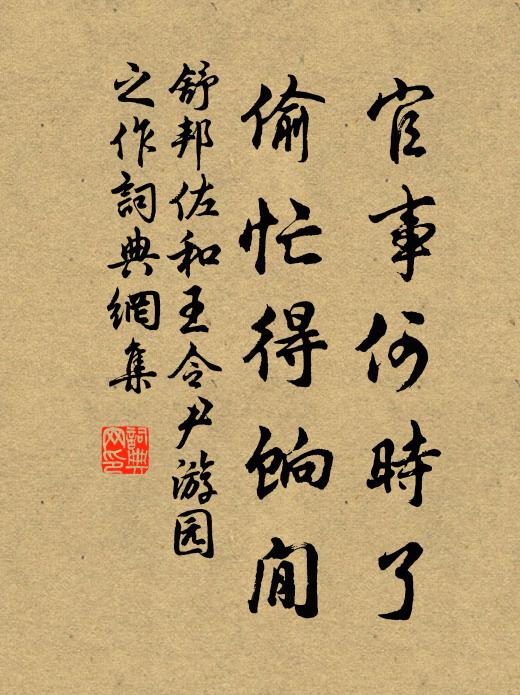 官事何時了
偷忙得餉閒
舒邦佐和王令尹游园
之作詞典網集
詞典网印